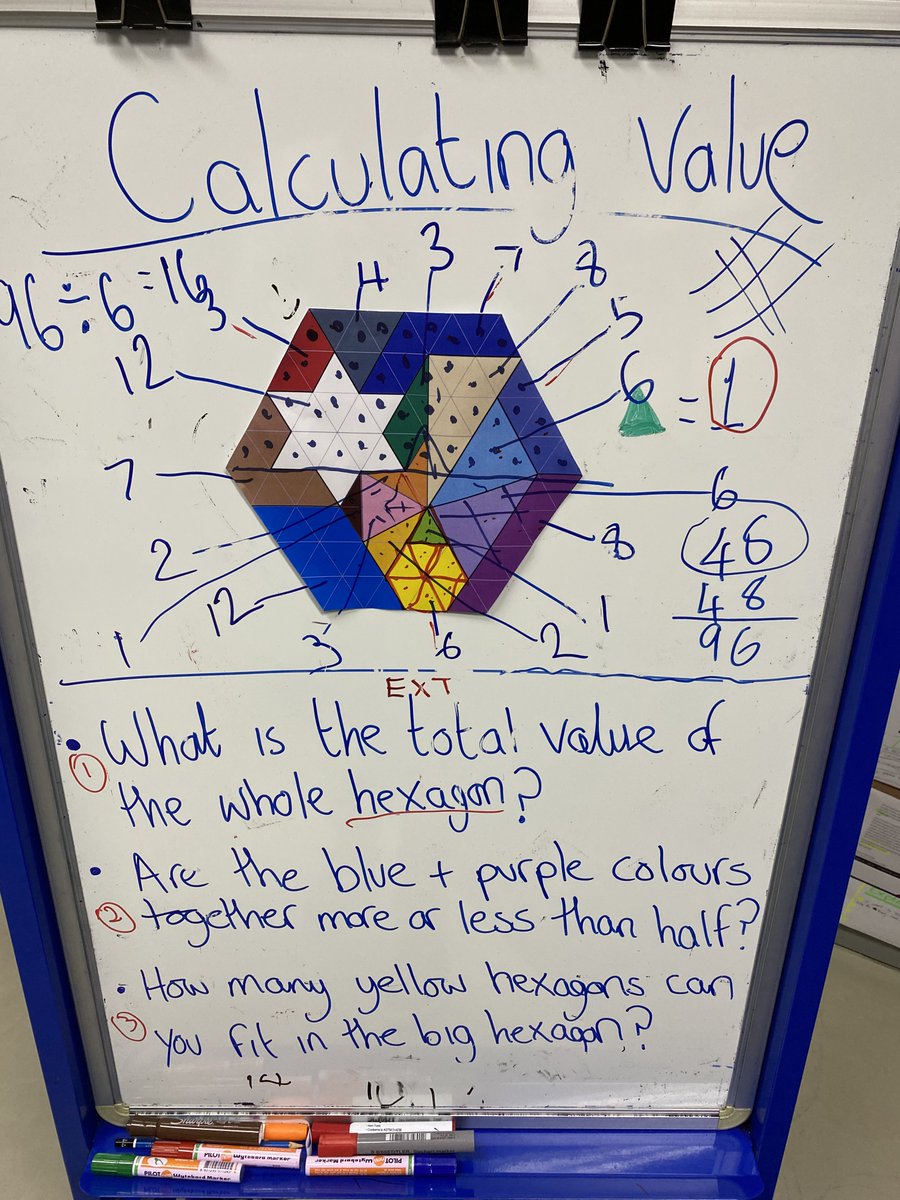 Calculating Value
96 ÷ 6 = 16
3
4
3
7
8
5
12
6
= 1
7
6
2
8
46
48
96
12
1
1
3
6
2
EXT
• What is the total value of
① the whole hexagon?
• Are the blue + purple colours
② together more or less than half?
• How many yellow hexagons can
③ you fit in the big hexagon?
Sharpie
PILOT Wyteboard marker
PILOT Wyteboard marker
PILOT Wyteboard marker